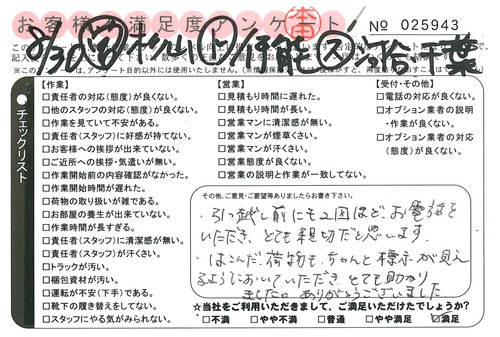 お客様満足度アンケート
№ 025943
チェックリスト
【作業】
□責任者の対応(態度)が良くない。
□他のスタッフの対応(態度)が良くない。
□作業を見ていて不安がある。
□責任者(スタッフ)に好感が持てない。
□お客様への挨拶が出来ていない。
□ご近所への挨拶・気遣いが無い。
□作業開始前の内容確認がなかった。
□作業開始時間が遅れた。
□荷物の取り扱いが雑である。
□お部屋の養生が出来ていない。
□作業時間が長すぎる。
□責任者(スタッフ)に清潔感が無い。
□責任者(スタッフ)が汗くさい。
□トラックが汚い。
□梱包資材が汚い。
□運転が不安(下手)である。
□靴下の履き替えをしてない。
□スタッフにやる気がみられない。
【営業】
□見積もり時間に遅れた。
□見積もり時間が長い。
□営業マンに清潔感が無い。
□営業マンが煙草くさい。
□営業マンが汗くさい。
□営業態度が良くない。
□営業の説明と作業が一致してない。
【受付・その他】
□電話の対応が良くない。
□オプション業者の説明
・作業が良くない。
□オプション業者の対応
(態度)が良くない。
その他、ご意見・ご要望等ありましたらお書き下さい。
・引っ越し前にも2回ほど、お電話を
いただき、とても親切だと思います。
・はこんだ荷物も、ちゃんと標示が見え
るようにおいていただき、とても助かり
ました。ありがとうございました
☆当社をご利用いただきまして、ご満足いただけたでしょうか?
□不満 □やや不満 □普通 □やや満足 ☑満足